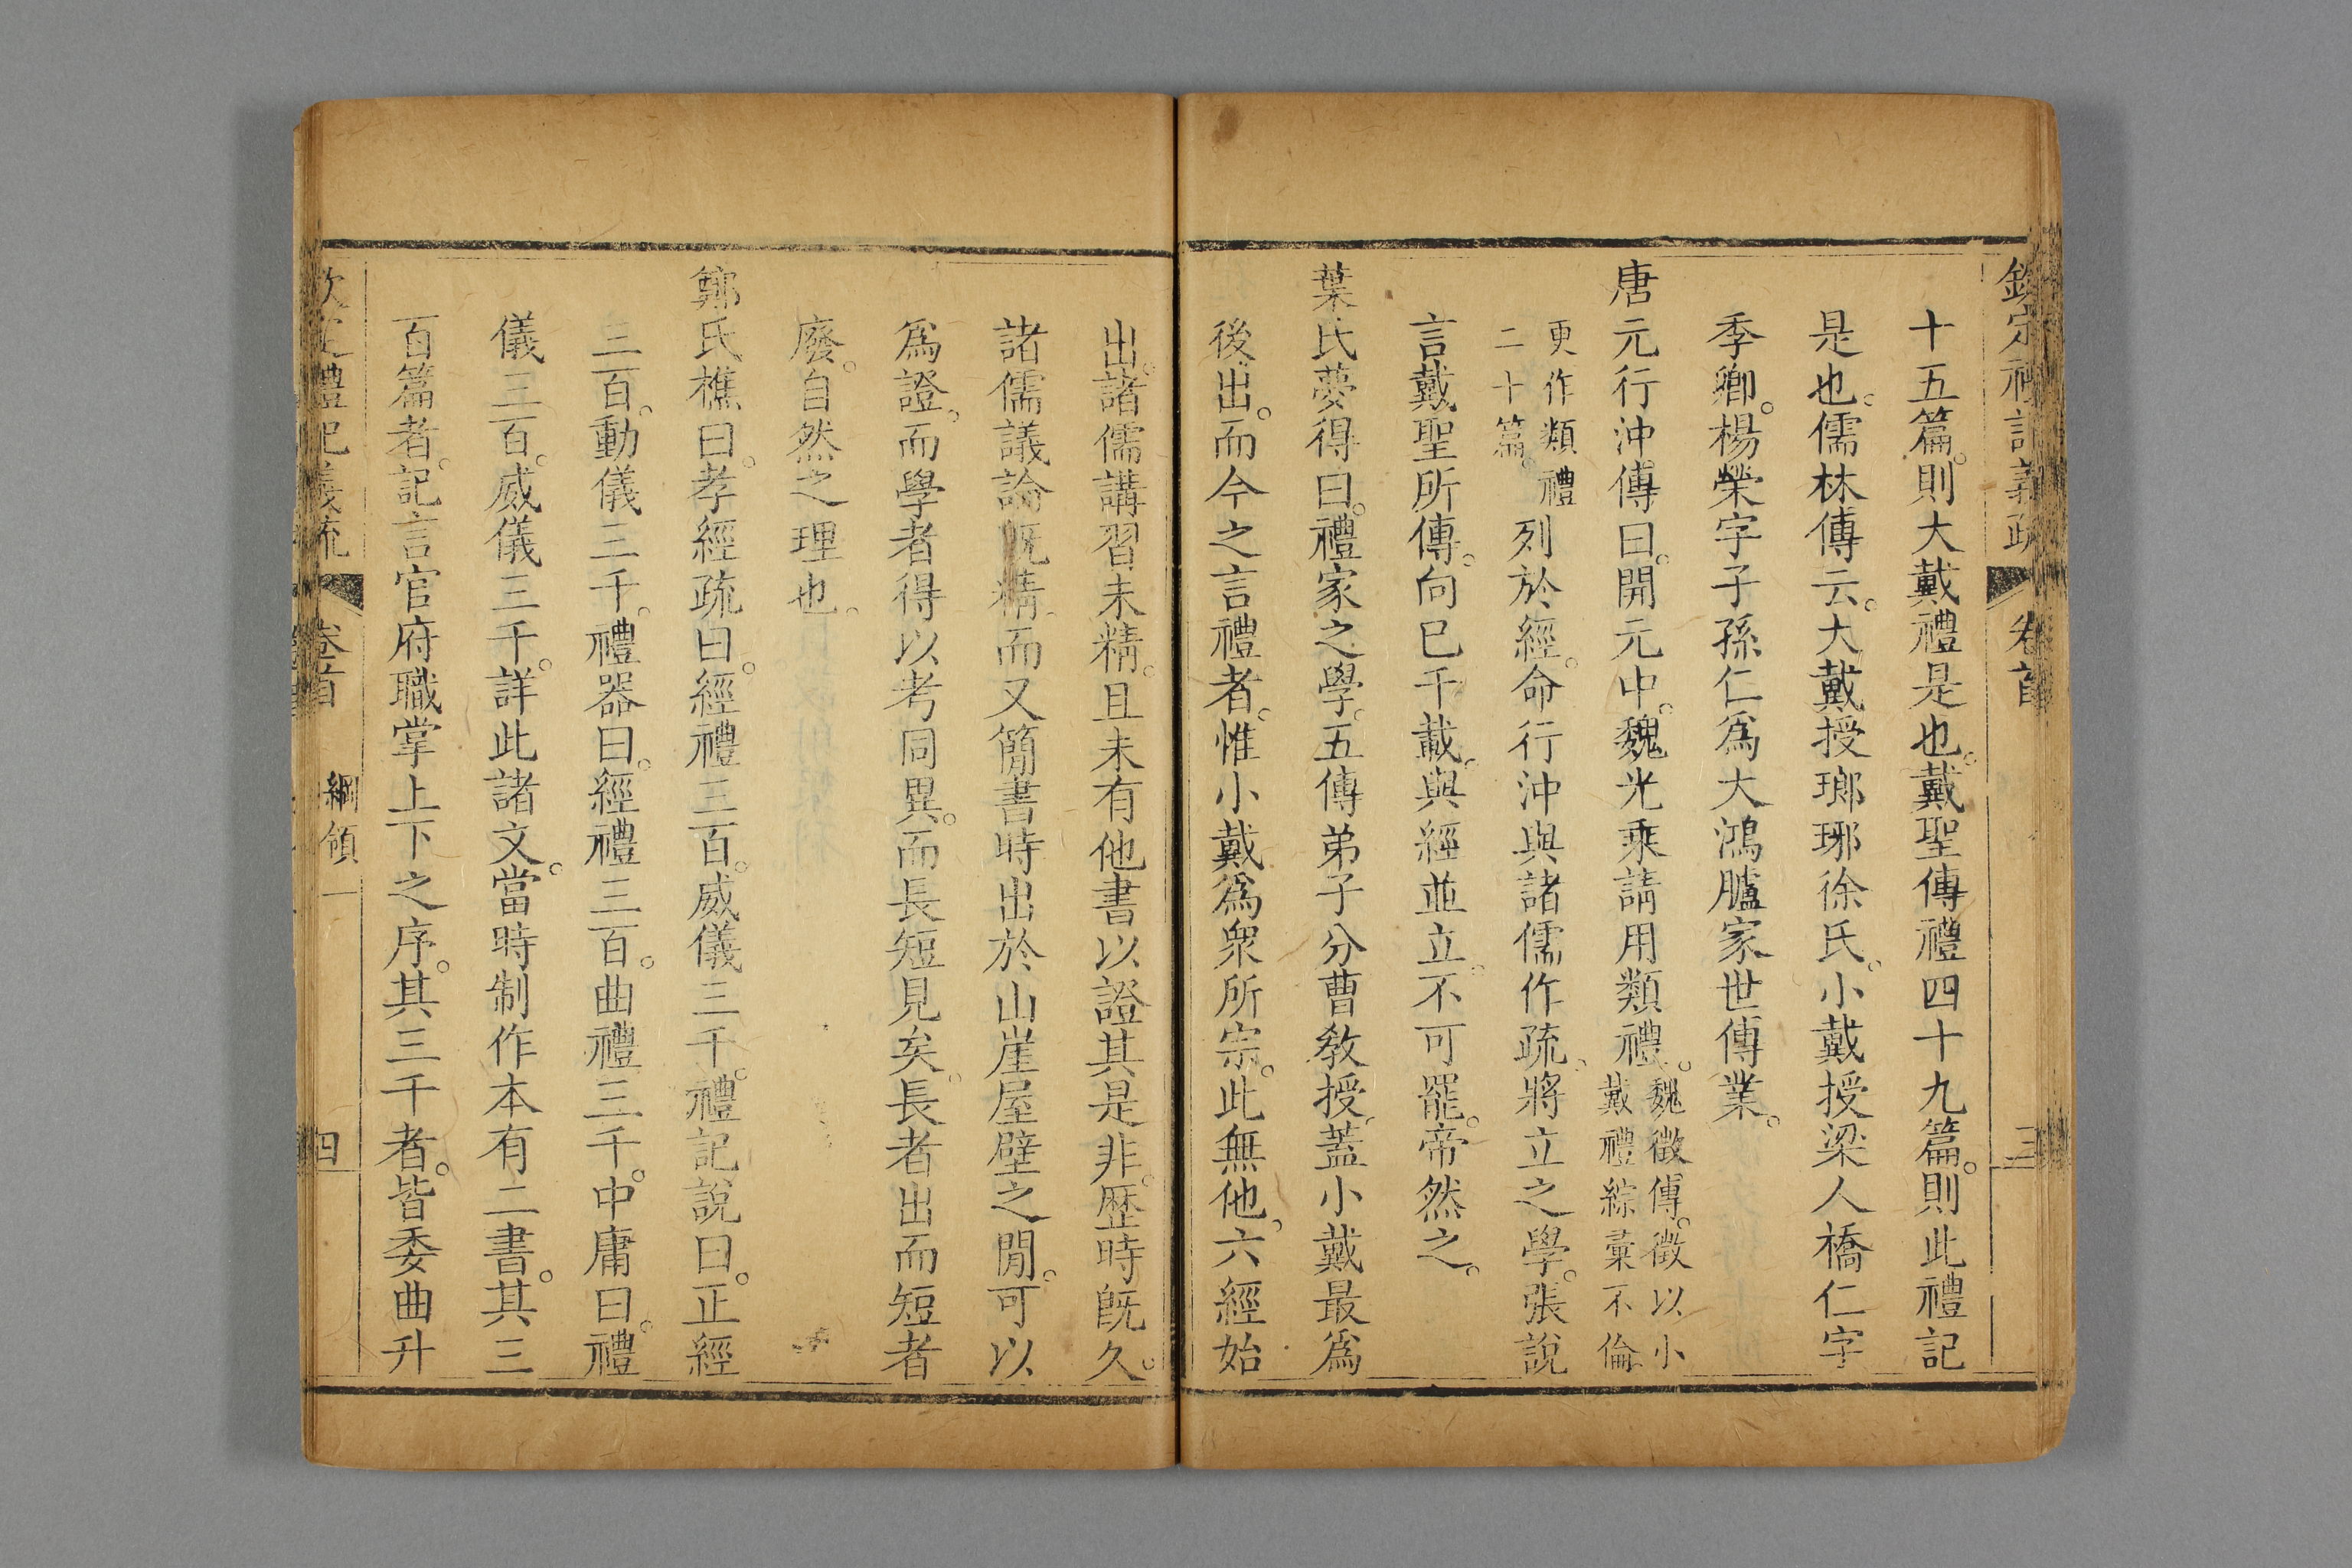 欽定禮記義疏 卷首 三
十五篇。則大戴禮是也。戴聖傳禮四十九篇。則此禮記
是也。儒林傳云。大戴授瑯琊徐氏。小戴授梁人橋仁字
季卿。楊榮字子孫仁爲大鴻臚家世傳業。
唐元行沖傳曰。開元中。魏光乘請用類禮。魏徵傳。徵以小戴禮綜彙不倫
更作類禮二十篇。列於經。命行沖與諸儒作疏。將立之學。張說
言戴聖所傳。向已千載。與經並立。不可罷。帝然之。
葉氏夢得曰。禮家之學。五傳弟子分曹教授。蓋小戴最爲
後出。而今之言禮者。惟小戴爲衆所宗。此無他。六經始
出。諸儒講習未精。且未有他書以證其是非。歷時旣久。
諸儒議論旣精。而又簡書時出於山崖屋壁之閒。可以
爲證。而學者得以考同異。而長短見矣。長者出而短者
廢。自然之理也。
鄭氏樵曰。孝經疏曰。經禮三百。威儀三千。禮記說曰。正經
三百。動儀三千。禮器曰。經禮三百。曲禮三千。中庸曰。禮
儀三百。威儀三千。詳此諸文。當時制作本有二書。其三
百篇者。記言官府職掌上下之序。其三千者。皆委曲升
禮記義疏 卷首 綱領一 四